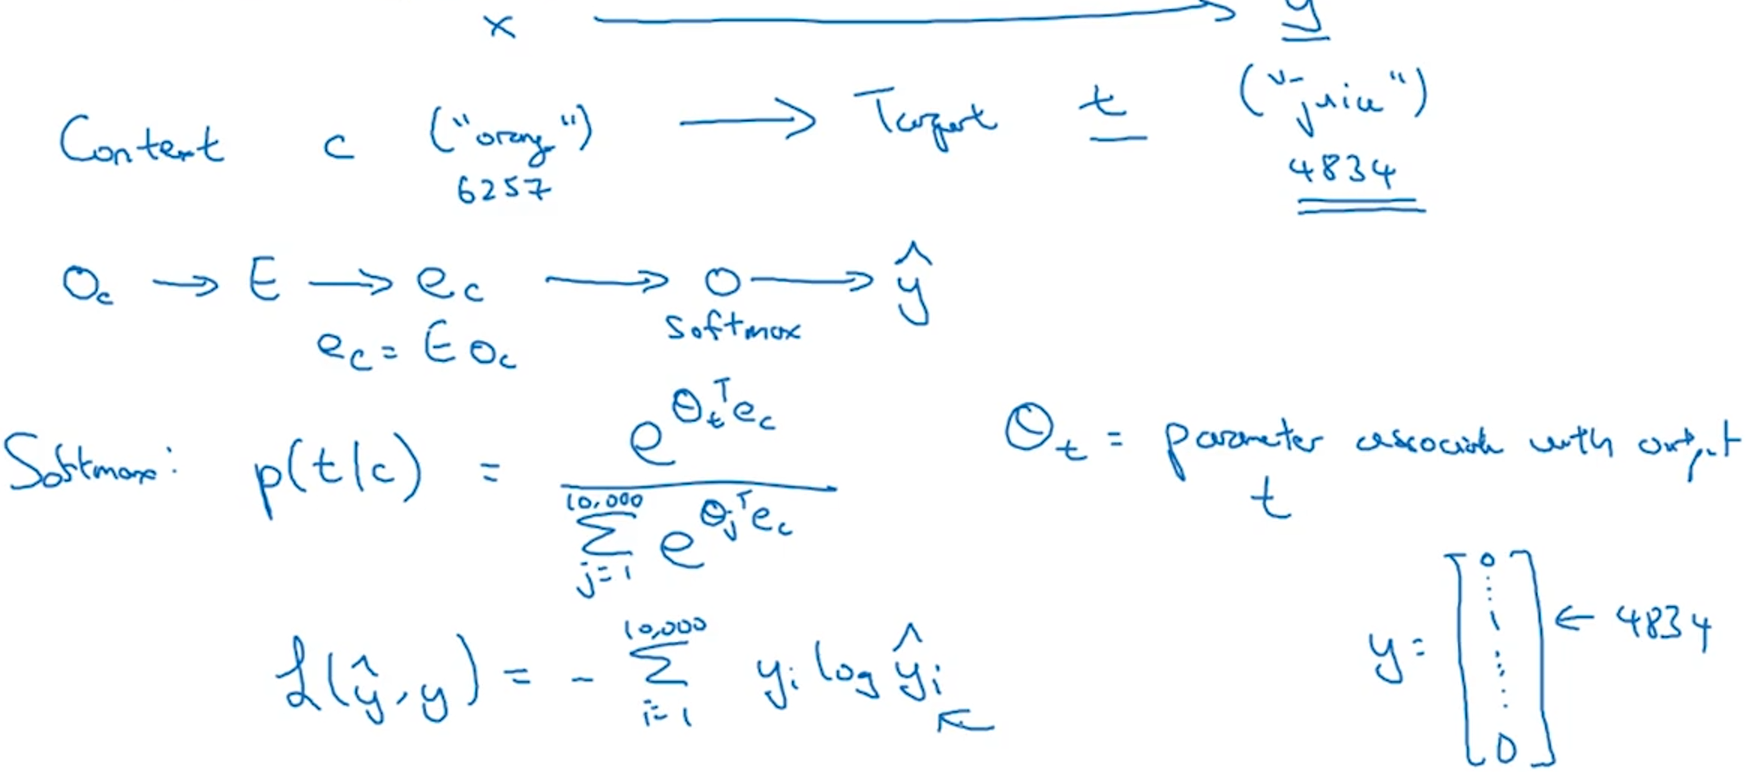 x ⟶ y
Context c ("orange") ⟶ Target t ("juice")
6257 4834
O_c → E → e_c ⟶ o ⟶ ŷ
softmax
e_c = E o_c
Softmax: p(t|c) = e^{θ_t^T e_c} / ∑_{j=1}^{10,000} e^{θ_j^T e_c} θ_t = parameter associated with output t
L(ŷ, y) = - ∑_{i=1}^{10,000} y_i log ŷ_i
y = [0 ⋮ 1 ⋮ 0] ← 4834